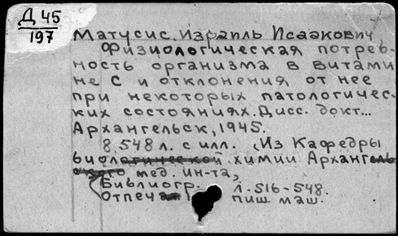 Д 45
197
Матусис, Израиль Исаакович
Физиологическая потреб-
ность организма в витами
не С и отклонения от нее
при некоторых патологичес-
ких состояниях. Дисс. докт...
Архангельск, 1945.
8, 548 л. с илл. (Из Кафедры
биологической химии Архангель
ского мед. ин-та,
Библиогр. л. 516-548.
Отпеч. пиш. маш.